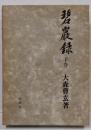 碧巌録
下巻
大森曹玄著